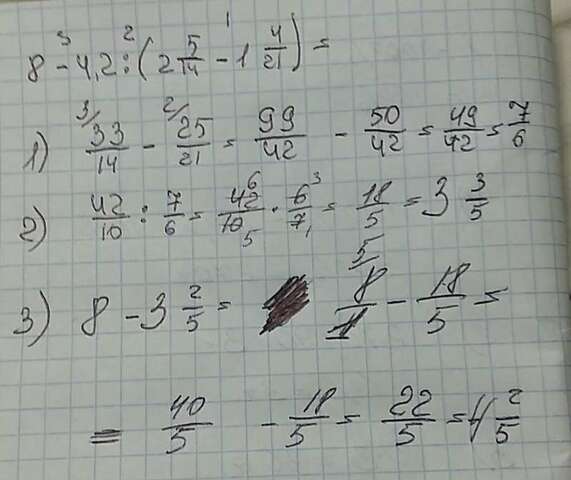 8 - 4,2 : (2 5/14 - 1 4/21) =
1) 33/14 - 25/21 = 99/42 - 50/42 = 49/42 = 7/6
2) 42/10 : 7/6 = 42/10 · 6/7 = 18/5 = 3 3/5
3) 8 - 3 2/5 = 8/1 - 18/5 =
= 40/5 - 18/5 = 22/5 = 4 2/5